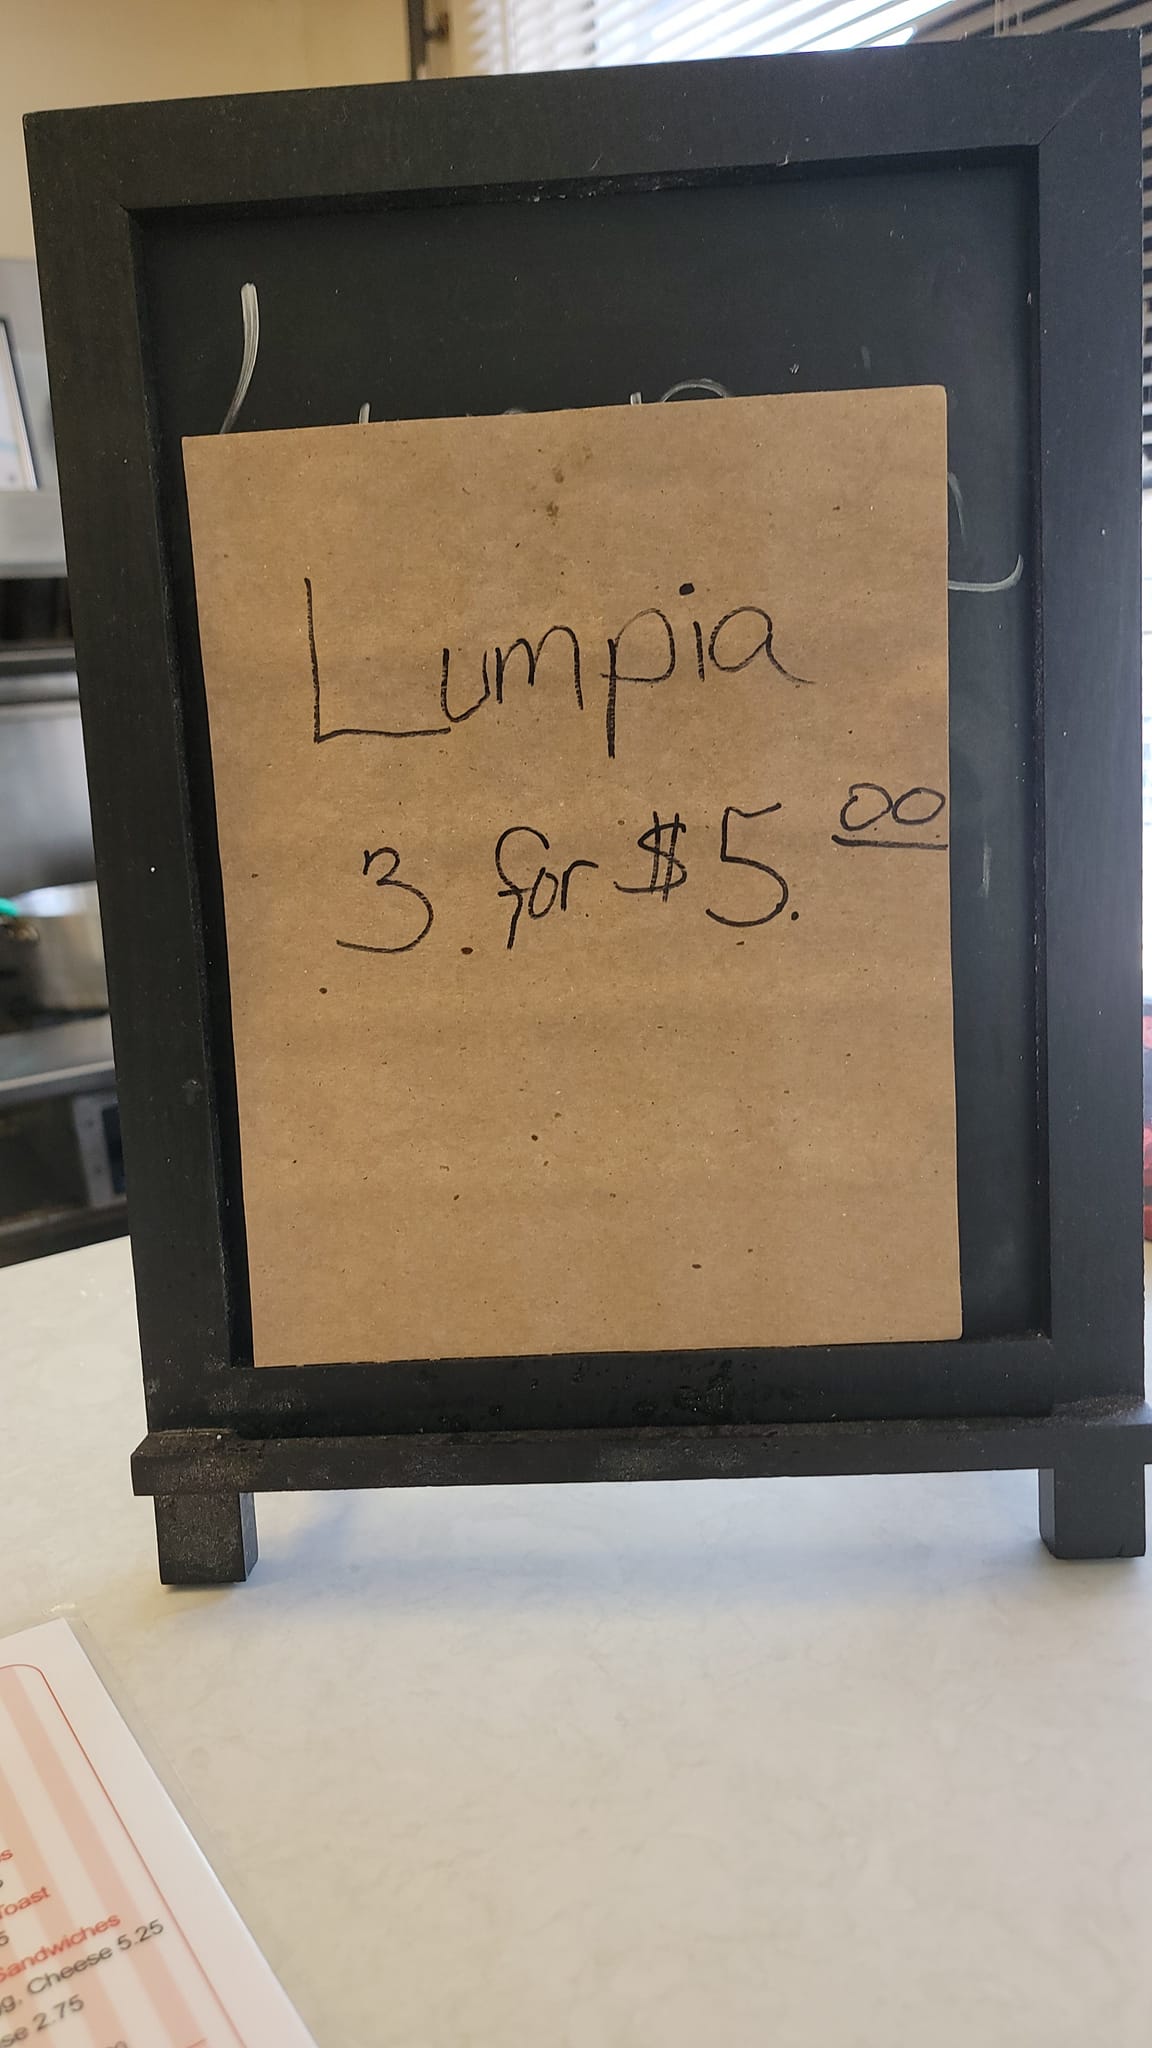 Lumpia
3 for $5.00
Toast
Sandwiches
Cheese 5.25
2.75